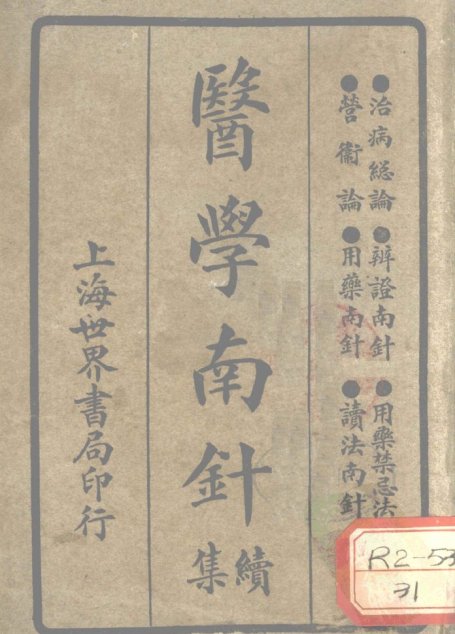 ●治病総論●辨證南針●用藥禁忌法
●營衞論●用藥南針●讀法南針
醫學南針
續集
上海世界書局印行
R2-53
31